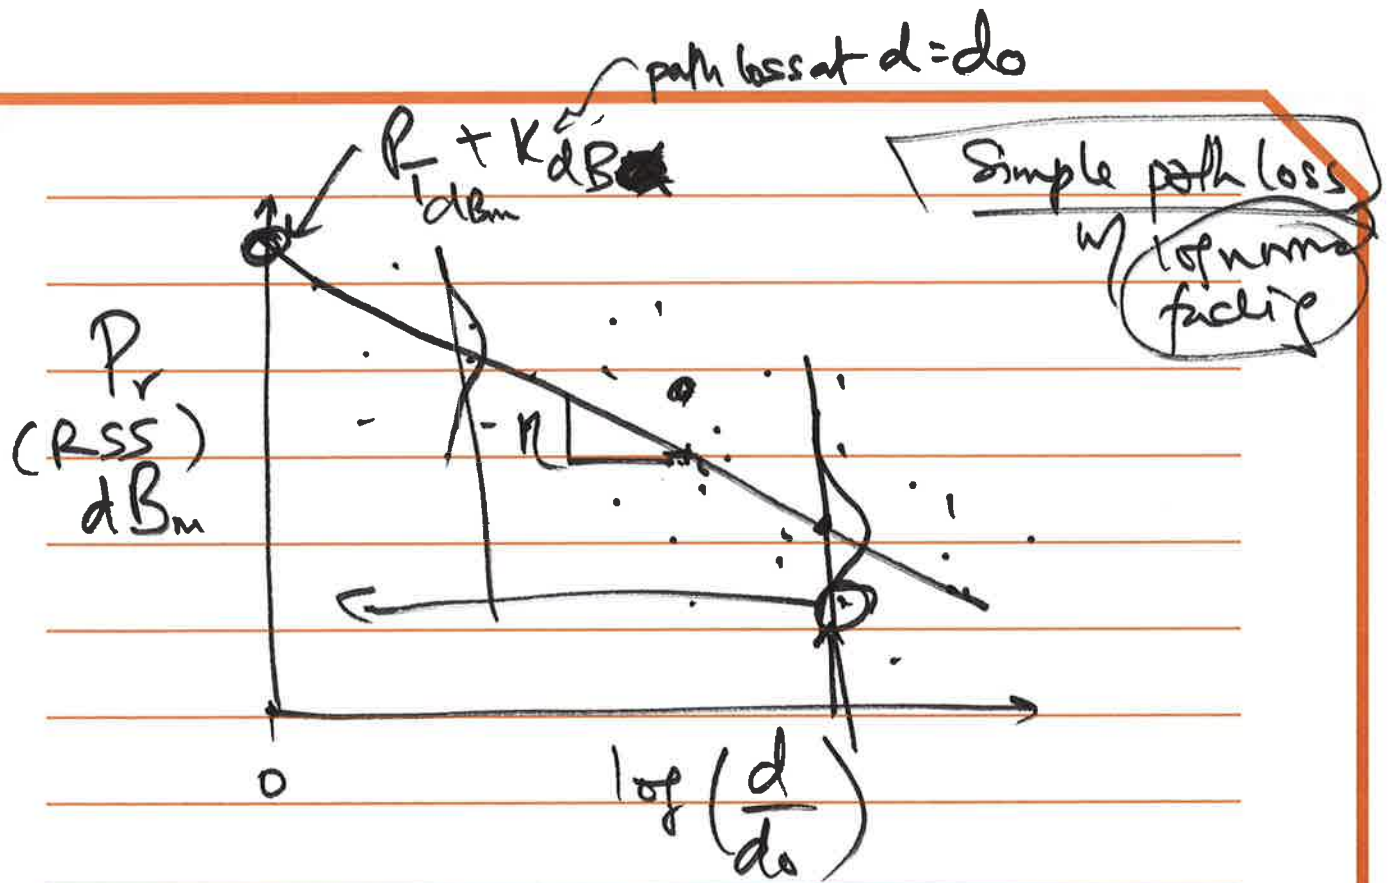 path loss at d=do
P_T dBm + K dB
Simple path loss
w/ lognormal
fading
Pr
(RSS)
dBm
-n
0
log(d/do)